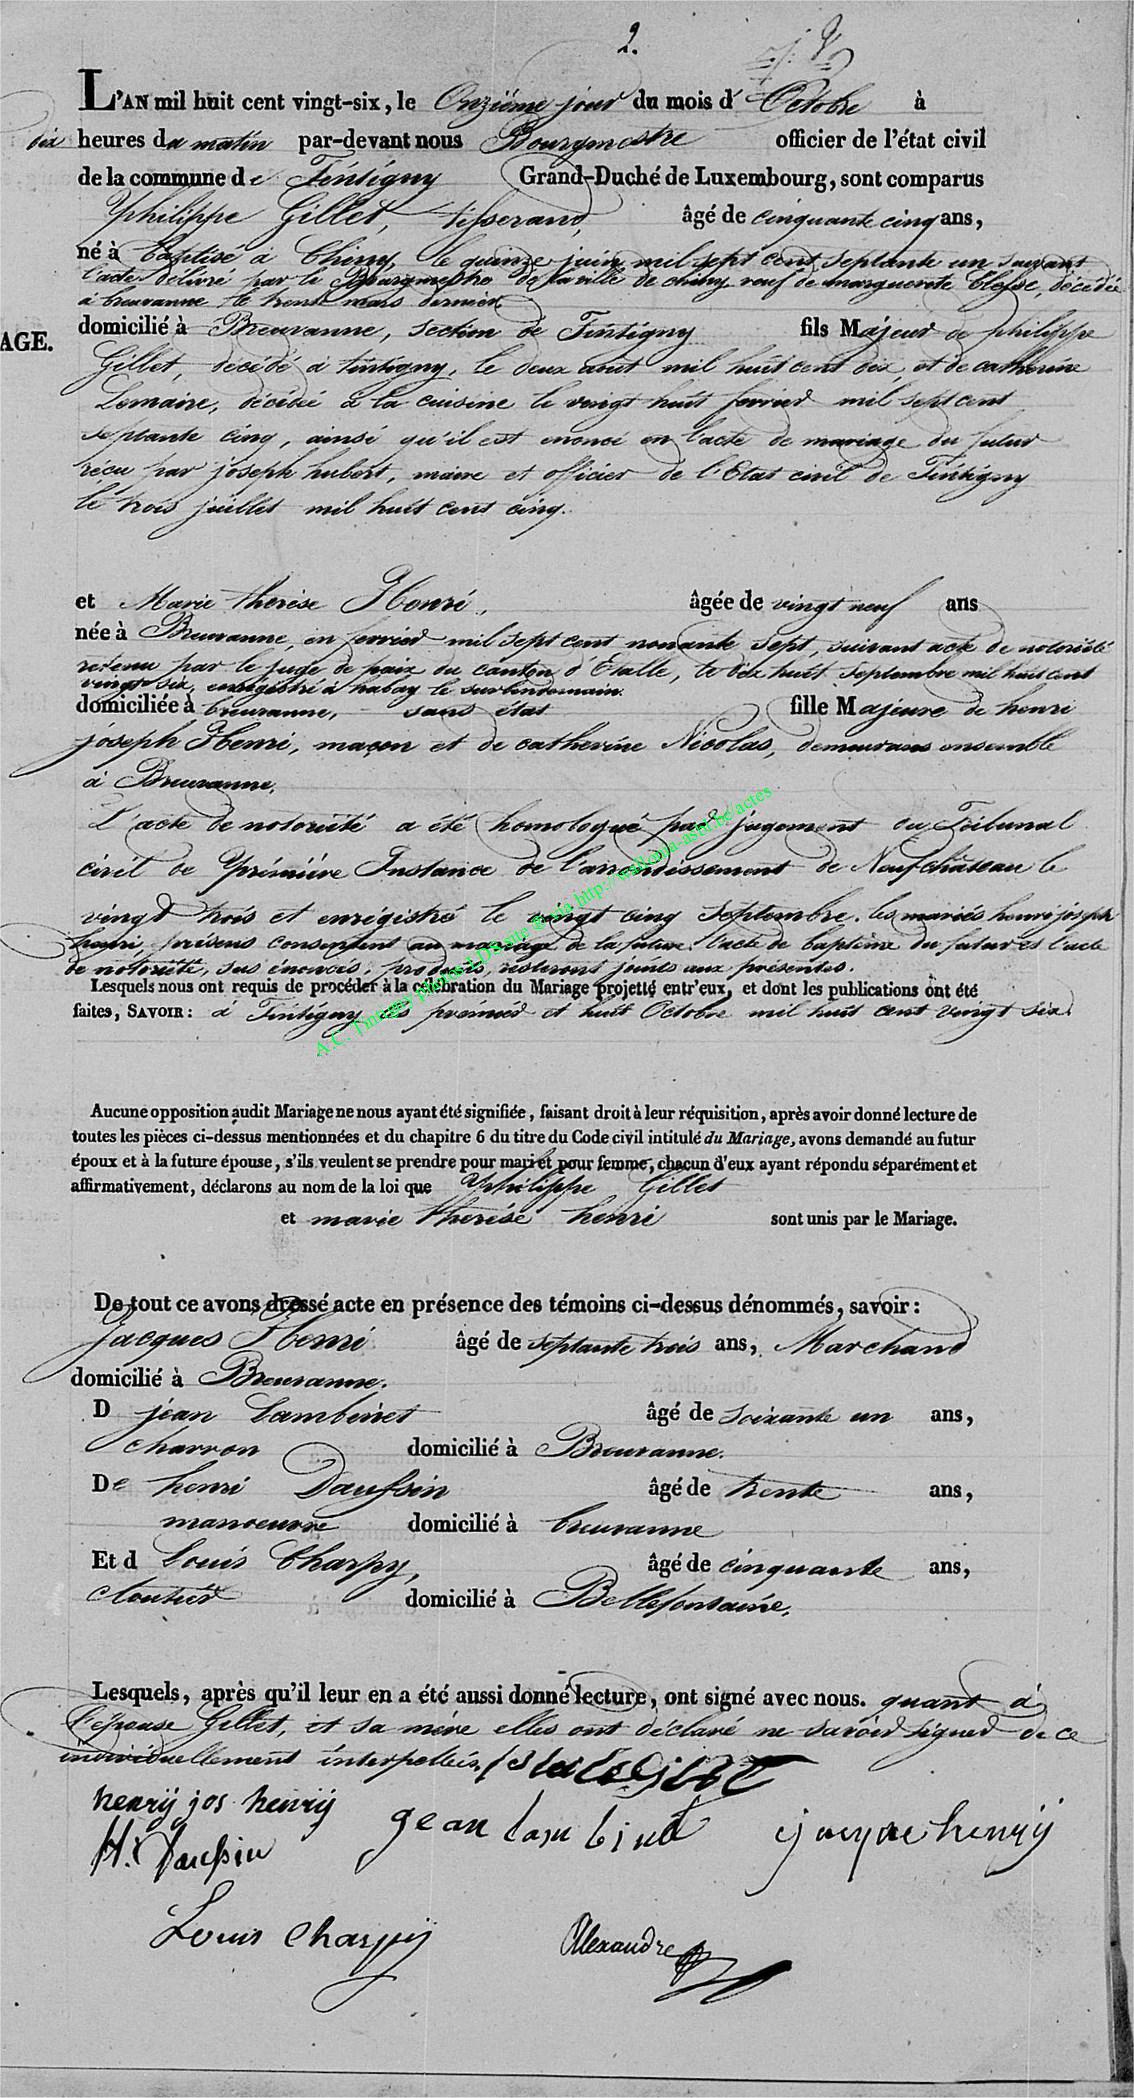 2.
L'AN mil huit cent vingt-six, le Onziéme jour du mois d' Octobre à
dix heures du matin par-devant nous Bourgmestre officier de l'état civil
de la commune de Tintigny Grand-Duché de Luxembourg, sont comparus
philippe Gillet, tisserand, âgé de cinquante cinq ans,
né à Baptisé à Chiny, le quinze juin mil sept cent septante un suivant
l'acte délivré par le Bourgmestre de la ville de chiny veuf de marguerite décédée
à breuvanne le trente mars dernier
domicilié à Breuvanne, section de Tintigny fils Majeur de philippe
AGE.
Gillet, décédé à tintigny, le deux aout mil huit cent dix, et de catherine
Lemaire, décédée à la cuisine le vingt huit fevrier mil sept cent
septante cinq, ainsi qu'il est enoncé en l'acte de mariage du futur
reçu par joseph hubert, maire et officier de l'Etat civil de Tintigny
le trois juillet mil huit cent cinq.
et Marie therèse Henri, âgée de vingt neuf ans
née à Breuvanne, en fevrier mil sept cent nonante sept, suivant acte de notoriété
retenu par le juge de paix du canton d'Etalle, le dix huit septembre mil huit cent
vingt six, enregistré à habay le surlendemain.
domiciliée à breuvanne, sans état fille Majeure de henri
joseph Henri, maçon et de catherine Nicolas, demeurans ensemble
à Breuvanne.
L'acte de notoriété a été homologué par jugement du Tribunal
civil de première Instance de l'arrondissement de Neufchâteau le
vingt trois et enrégistré le vingt cinq Septembre. les mariés henri joseph
henri, présens consentent au mariage de la future. l'acte de baptême du futur et l'acte
de notoriété, sus énoncés, produits, resteront joints aux présentes.
Lesquels nous ont requis de procéder à la célébration du Mariage projetté entr'eux, et dont les publications ont été
faites, SAVOIR: à Tintigny les prémier et huit Octobre mil huit cent vingt six.
A.C. Tintigny photos LDS site & via http://wallonia-asbl.be/actes
Aucune opposition audit Mariage ne nous ayant été signifiée, faisant droit à leur réquisition, après avoir donné lecture de
toutes les pièces ci-dessus mentionnées et du chapitre 6 du titre du Code civil intitulé du Mariage, avons demandé au futur
époux et à la future épouse, s'ils veulent se prendre pour mari et pour femme, chacun d'eux ayant répondu séparément et
affirmativement, déclarons au nom de la loi que philippe Gillet
et marie therése henri sont unis par le Mariage.
De tout ce avons dressé acte en présence des témoins ci-dessus dénommés, savoir:
jacques Henri âgé de septante trois ans, Marchand
domicilié à Breuvanne.
D jean Lambinet âgé de soixante un ans,
charron domicilié à Breuvanne.
De henri Daussin âgé de trente ans,
manoeuvre domicilié à breuvanne
Et d Louis Charpy, âgé de cinquante ans,
cloutier domicilié à Bellefontaine.
Lesquels, après qu'il leur en a été aussi donné lecture, ont signé avec nous. quant à
l'épouse Gillet, et sa mère elles ont déclaré ne savoir signer de ce
individuellement interpellés.
henrÿ jos henrÿ gean lambinet jacque henrÿ
H. Daussin
Louis Charpÿ Alexandre